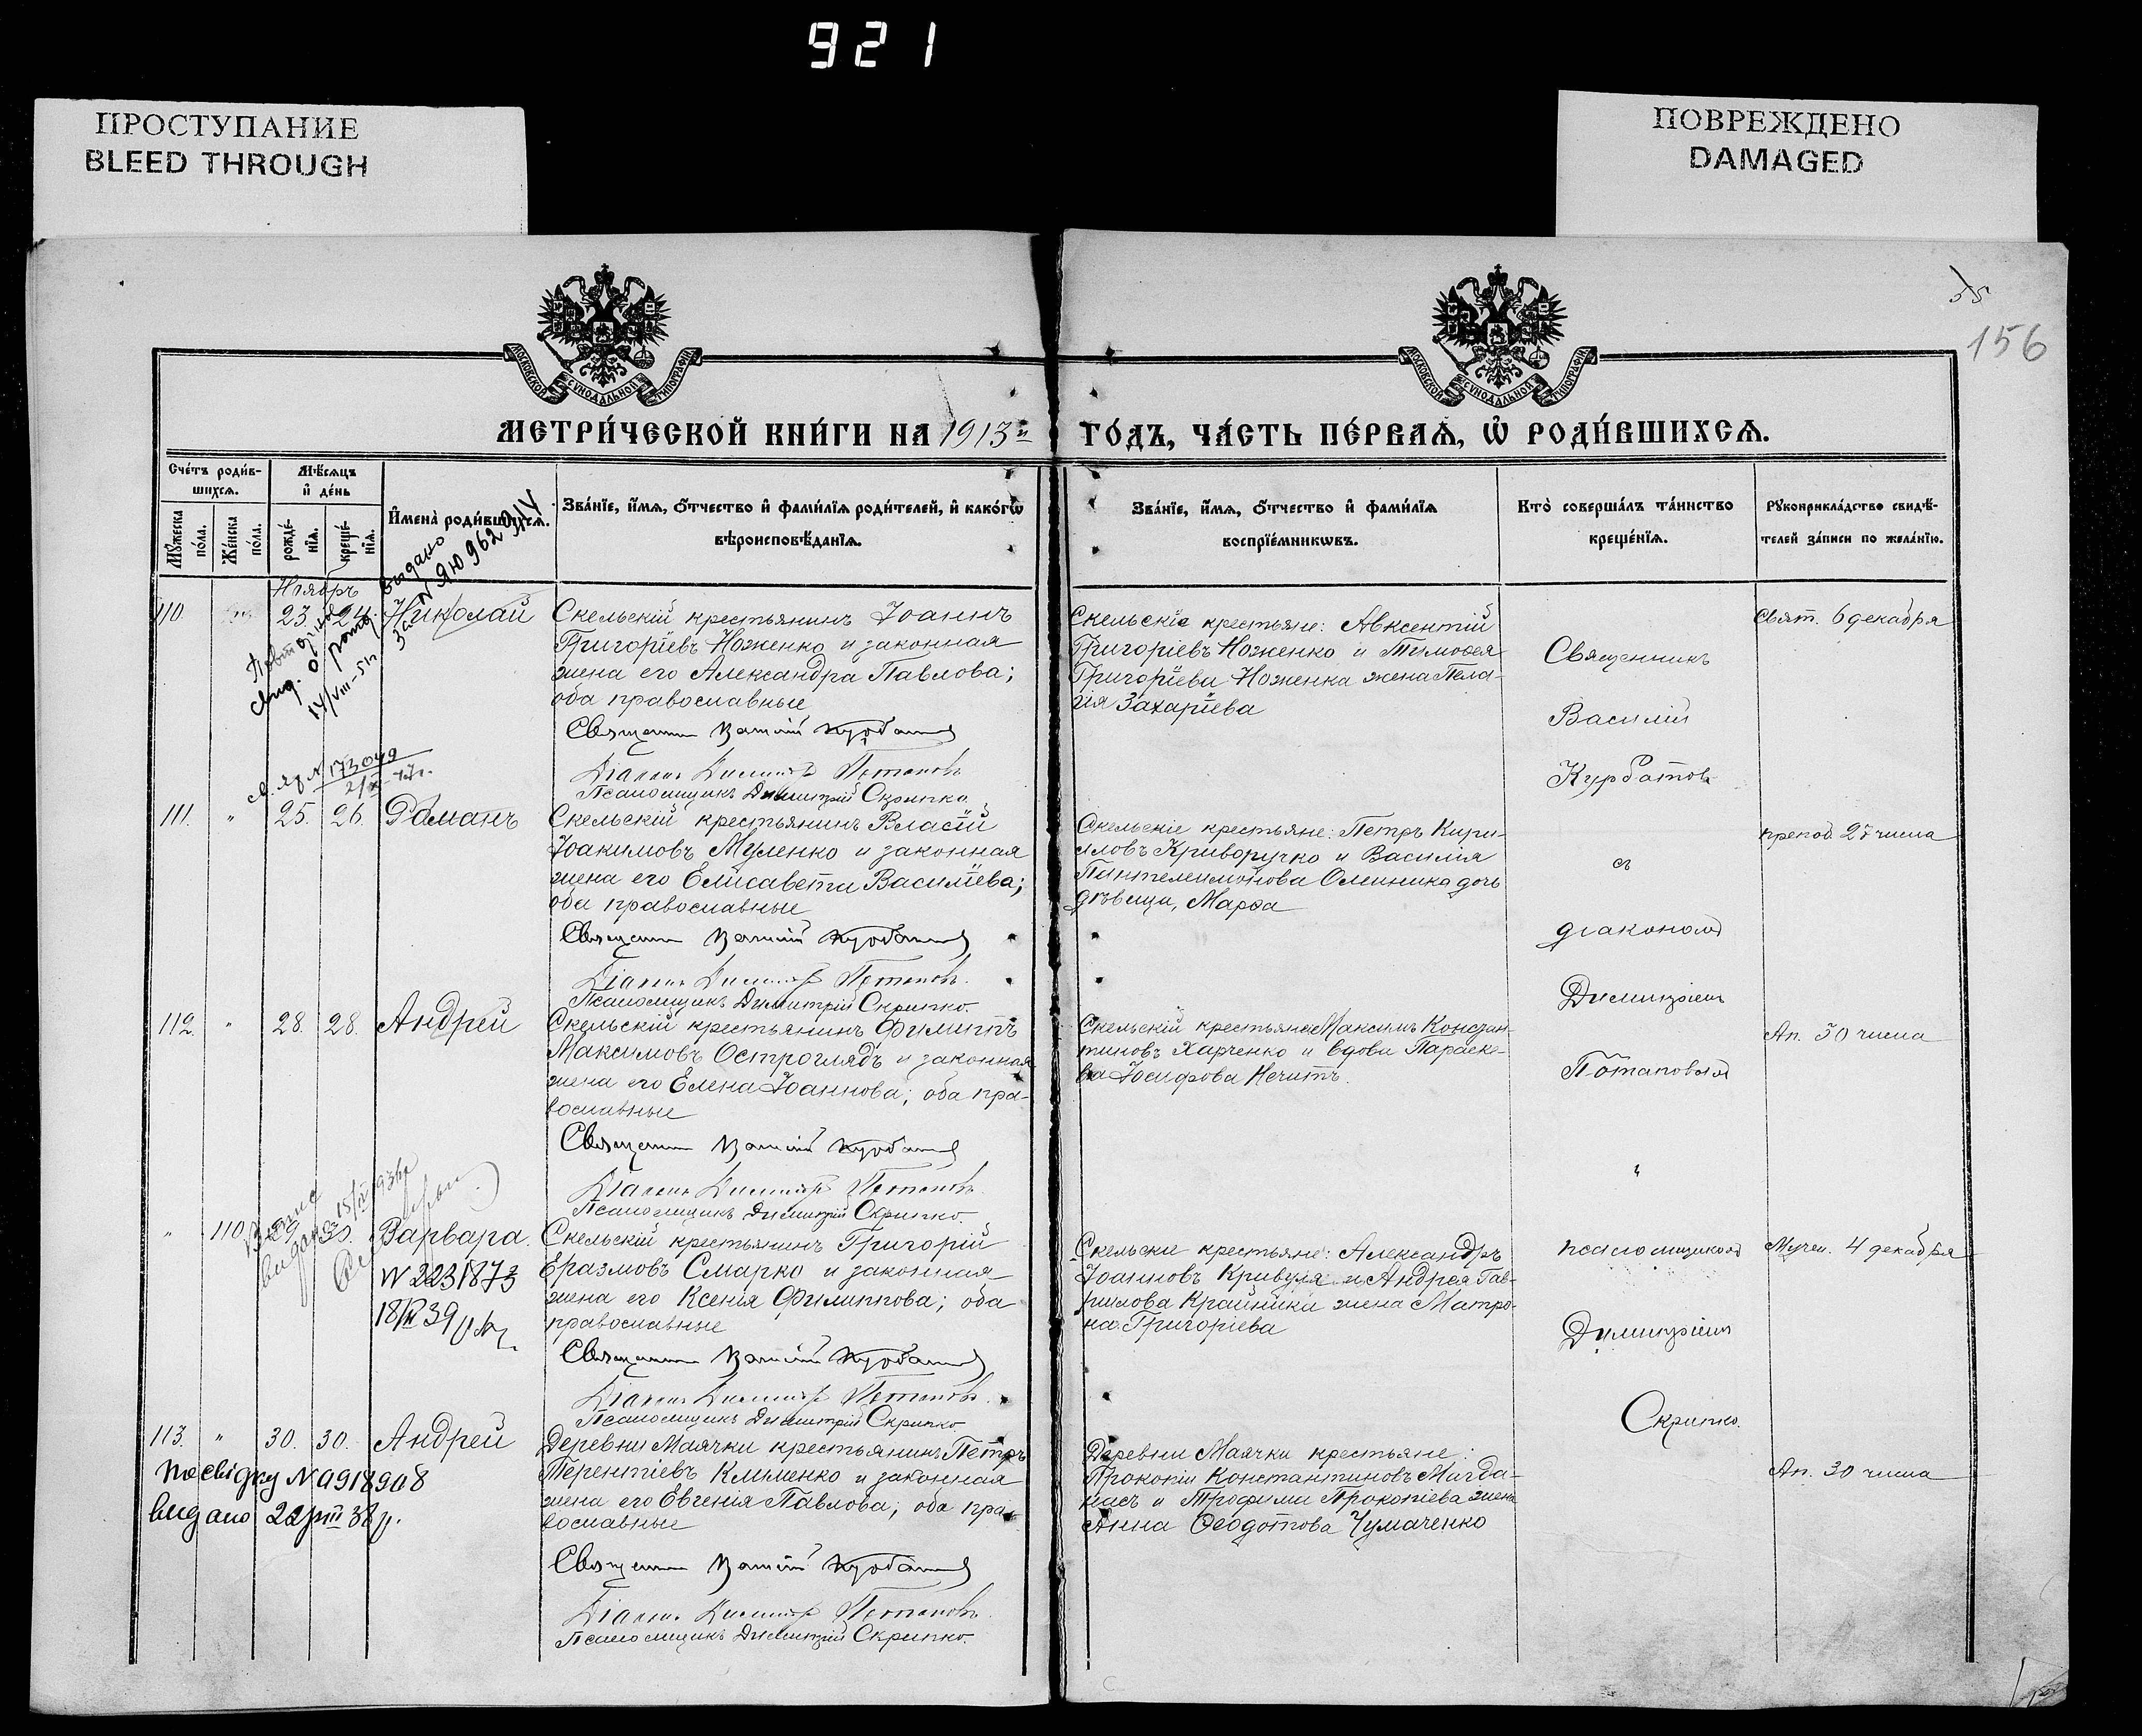 921
ПРОСТУПАНИЕ
BLEED THROUGH
ПОВРЕЖДЕНО
DAMAGED
55
156
МОСКОВСКОЙ СѴНОДАЛЬНОЙ ТИПОГРАФІИ
МОСКОВСКОЙ СѴНОДАЛЬНОЙ ТИПОГРАФІИ
МЕТРИ́ЧЕСКОЙ КНИ́ГИ НА 1913й
ГО́ДЪ, ЧА́СТЬ ПЕ́РВАЯ, Ѡ҆ РОДИ́ВШИХСЯ.
Сче́тъ роди́в-
шихся.
Мѣ́сяцъ
и҆ де́нь
Мꙋ́жеска по́ла.
Же́нска по́ла.
рожде́-
нїѧ.
креще́-
нїѧ.
И҆мена̀ роди́вшихся.
Зва́нїе, и҆́мя, о҆́тчество и҆ фами́лїя роди́телей, и҆ како́гѡ
вѣроисповѣ́данїя.
Зва́нїе, и҆́мя, о҆́тчество и҆ фами́лїя
воспрїе́мникѡвъ.
Кто̀ соверша́лъ та́инство
креще́нїя.
Рꙋкоприкла́дство свидѣ́-
телей за́писи по жела́нїю.
Ноябрь
110.
23.
24.
Николай
выдано
за N ЯЮ 962
Повторное
свид. о рожд.
14/VIII-51г
Скельскій крестьянинъ Іоаннъ
Григоріевъ Ноженко и законная
жена его Александра Павлова;
оба православные
Священникъ Василій Курбатовъ
Діаконъ Димитрій Потаповъ
Псаломщикъ Димитрій Скрипко.
Скельскіе крестьяне: Авксентій
Григоріевъ Ноженко и Тимоѳея
Григоріева Ноженка жена Пела-
гія Захаріева
Священникъ
Василій
Курбатовъ
Свят. 6 декабря
N 173049
111.
"
25.
26.
Романъ
Скельскій крестьянинъ Власій
Іоакимовъ Муленко и законная
жена его Елисавета Василіева;
оба православные
Священникъ Василій Курбатовъ
Діаконъ Димитрій Потаповъ.
Псаломщикъ Димитрій Скрипко.
Скельскіе крестьяне: Петръ Кири-
ловъ Криворучко и Василія
Пантелеимонова Олейника дочь
дѣвица, Марѳа
съ
діакономъ
Димитріемъ
препод. 27 числа
112.
"
28.
28.
Андрей
Скельскій крестьянинъ Филиппъ
Максимовъ Остроглядъ и законная
жена его Елена Іоаннова; оба пра-
вославные
Священникъ Василій Курбатовъ
Діаконъ Димитрій Потаповъ.
Псаломщикъ Димитрій Скрипко.
Скельскій крестьяне Максимъ Констан-
тиновъ Харченко и вдова Параске-
ва Іосифова Нечитъ.
Потаповымъ
и
Ап. 30 числа
"
110
29.
30.
Варвара.
N 2231873
Скельскій крестьянинъ Григорій
Еразмовъ Смарко и законная
жена его Ксенія Филиппова; оба
православные
Священникъ Василій Курбатовъ
Діаконъ Димитрій Потаповъ.
Псаломщикъ Димитрій Скрипко
Скельскіе крестьяне: Александръ
Іоанновъ Кривуля и Андрея Гав-
рилова Крайника жена Матро-
на Григоріева
псаломщикомъ
Димитріемъ
Скрипко.
Мучен. 4 декабря
113.
"
30.
30.
Андрей
N 0918908
видано 22/VIII 38 р.
Деревни Маячки крестьянинъ Петръ
Терентіевъ Клименко и законная
жена его Евгенія Павлова; оба пра-
вославные
Священникъ Василій Курбатовъ
Діаконъ Димитрій Потаповъ.
Псаломщикъ Димитрій Скрипко.
Деревни Маячки крестьяне:
Прокопій Константиновъ Магда-
насъ и Трофима Прокопіева жена
Анна Ѳеодотова Чумаченко
Ап. 30 числа